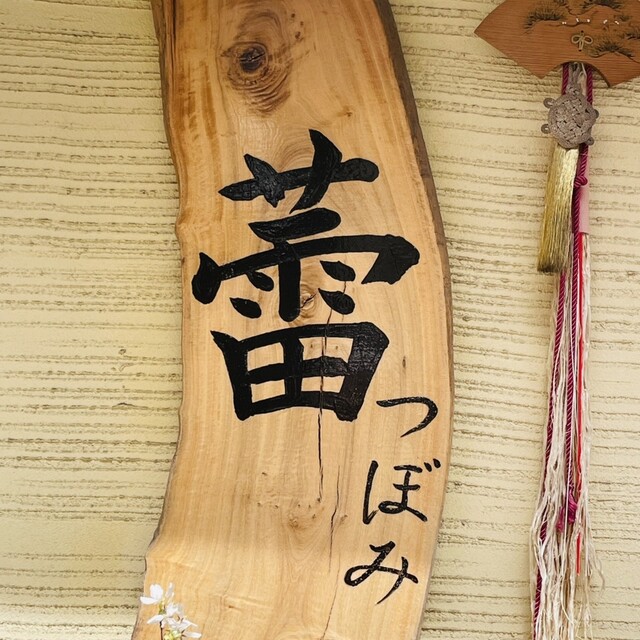 蕾
つぼみ